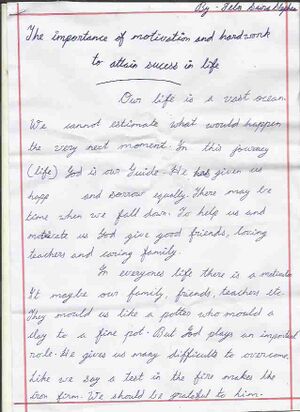 By :
The importance of motivation and hardwork
to attain sucess in life
Our life is a vast ocean.
We cannot estimate what would happen
the very next moment. In this journey
(life) God is our Guide. He has given us
happ and sorrow equally. There may be
time when we fall down. To help us and
motivate us God give good friends, loving
teachers and caring family.
In everyones life there is a motivator
It maybe our family, friends, teachers etc.
They mould us like a potter who mould a
clay to a fine pot. But God plays an important
role. He gives us many difficults to overcome.
Like we say a test in the fire makes the
iron firm. We should be grateful to him.